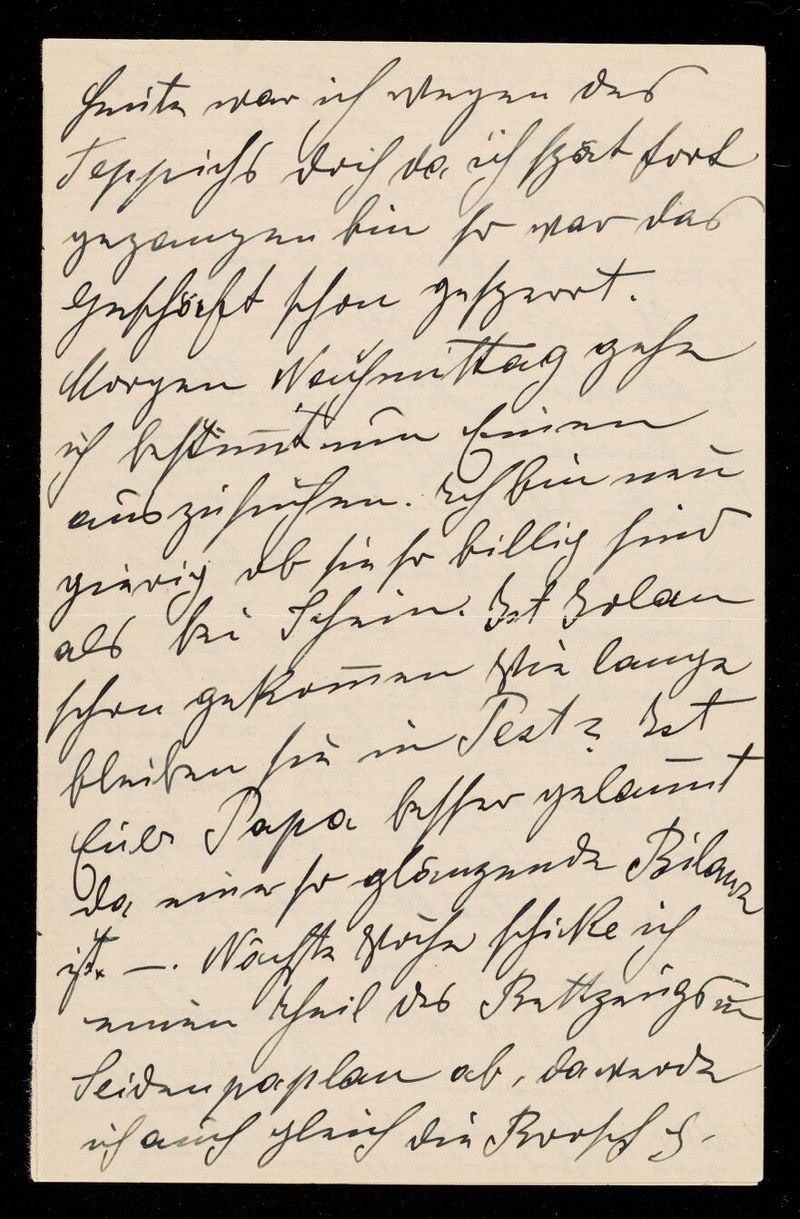 Heute war ich wegen des
Teppichs doch da ich spät fort
gegangen bin so war das
Geschäft schon gesperrt.
Morgen Nachmittag gehe
ich bestim̅t um Einen
auszusuchen. Ich bin neu
gierig ob sie so billig sind
als bei Schein. Ist Zolan
schon gekom̅en Wie lange
bleiben sie in Pest? Ist
Euer Papa besser gelaunt
da einer so glänzende Bilanz
ist. —. Nächste Woche schicke ich
einen Theil des Bettzeugs u̅
Seidenpaplan ab, da werde
ich auch gleich die